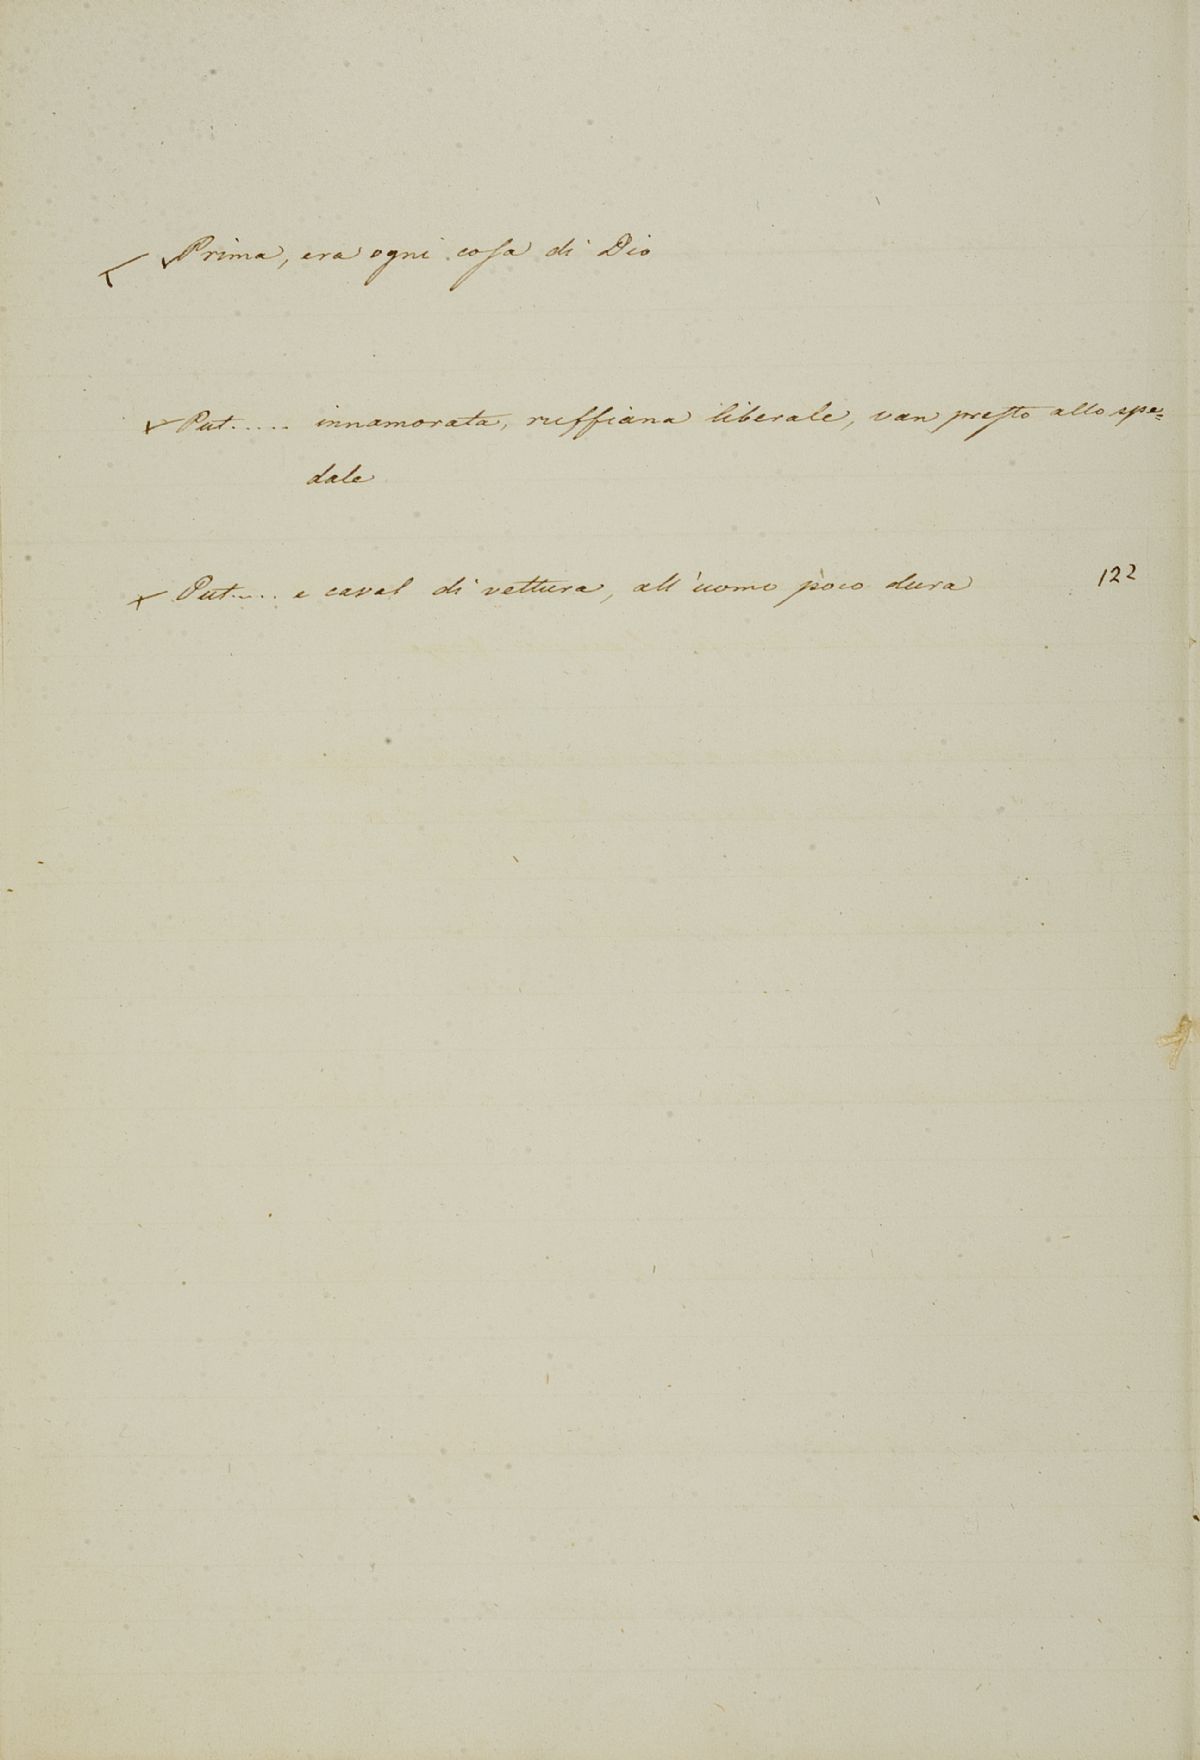 Prima, era ogni cosa di Dio
Put..... innamorata, ruffiana liberale, van presto allo spe=
dale
Put..... e caval di vettura, all'uomo poco dura 122